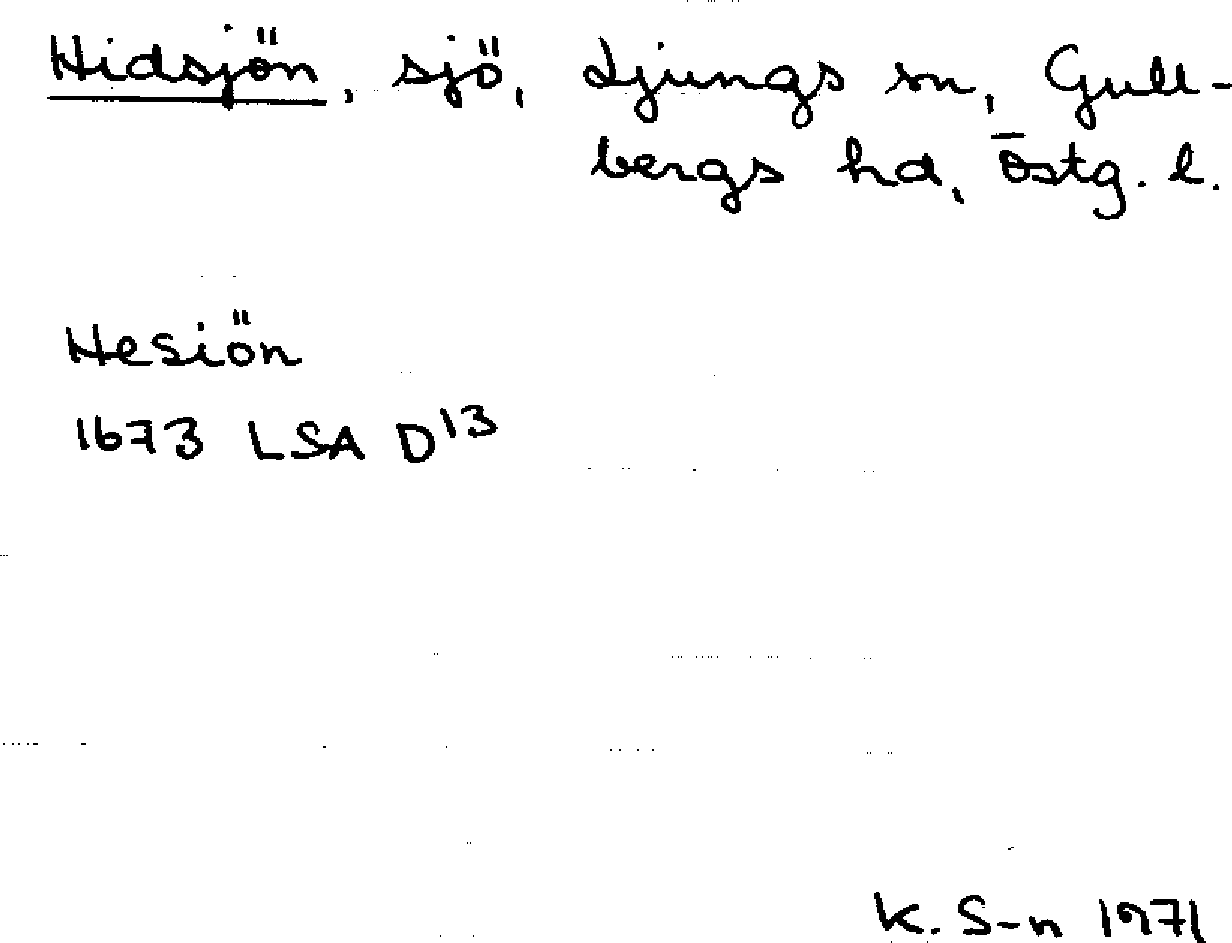 Hidsjön, sjö, Ljungs sn, Gull-
bergs hd, Östg. l.
Hesiön
1673 LSA D13
K. S-n 1971